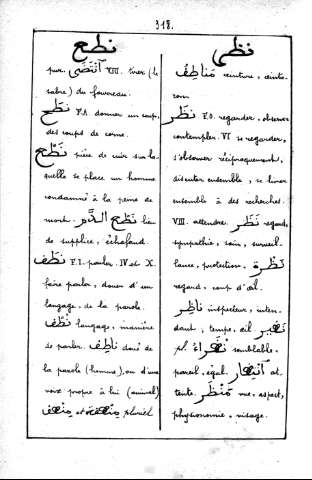 318.
نطع
نظى
pur. آنْتَضَى VIII. tirer (le
sabre) du fourreau.
نَطَحَ F.A. donner un coup,
des coups de corne.
نَطْع pièce de cuir sur la-
quelle se place un homme
condamné à la peine de
mort. نَطْع الدَّم lieu
de supplice, échafaud.
نَطَقَ F.I. parler. IV et X.
faire parler, douer d'un
langage, de la parole.
نُطْق langage, manière
de parler. نَاطِق doué de
la parole (homme), ou d'une
voix propre à lui (animal)
pluriel
مَنَاطِق ceinture, ceintu-
ron
نَظَرَ F.O. regarder, observer
contempler. VI se regarder,
s'observer réciproquement,
discuter ensemble, se livrer
ensemble à des recherches.
VIII. attendre. نَظَر regard,
sympathie, soin, surveil-
lance, protection. نَظْرَة
regard, coup d'œil.
نَاظِر inspecteur, inten-
dant, tempe, œil نَظِير
pl. نُظَرَاء semblable,
pareil, égal. آنْتِظَار at-
tente. مَنْظَر vue, aspect,
physionomie, visage.